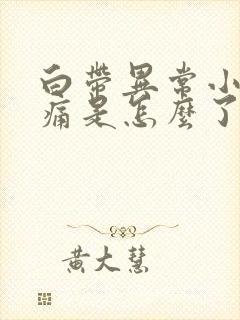 白帶異常小
痛是怎麼了
黃大慧